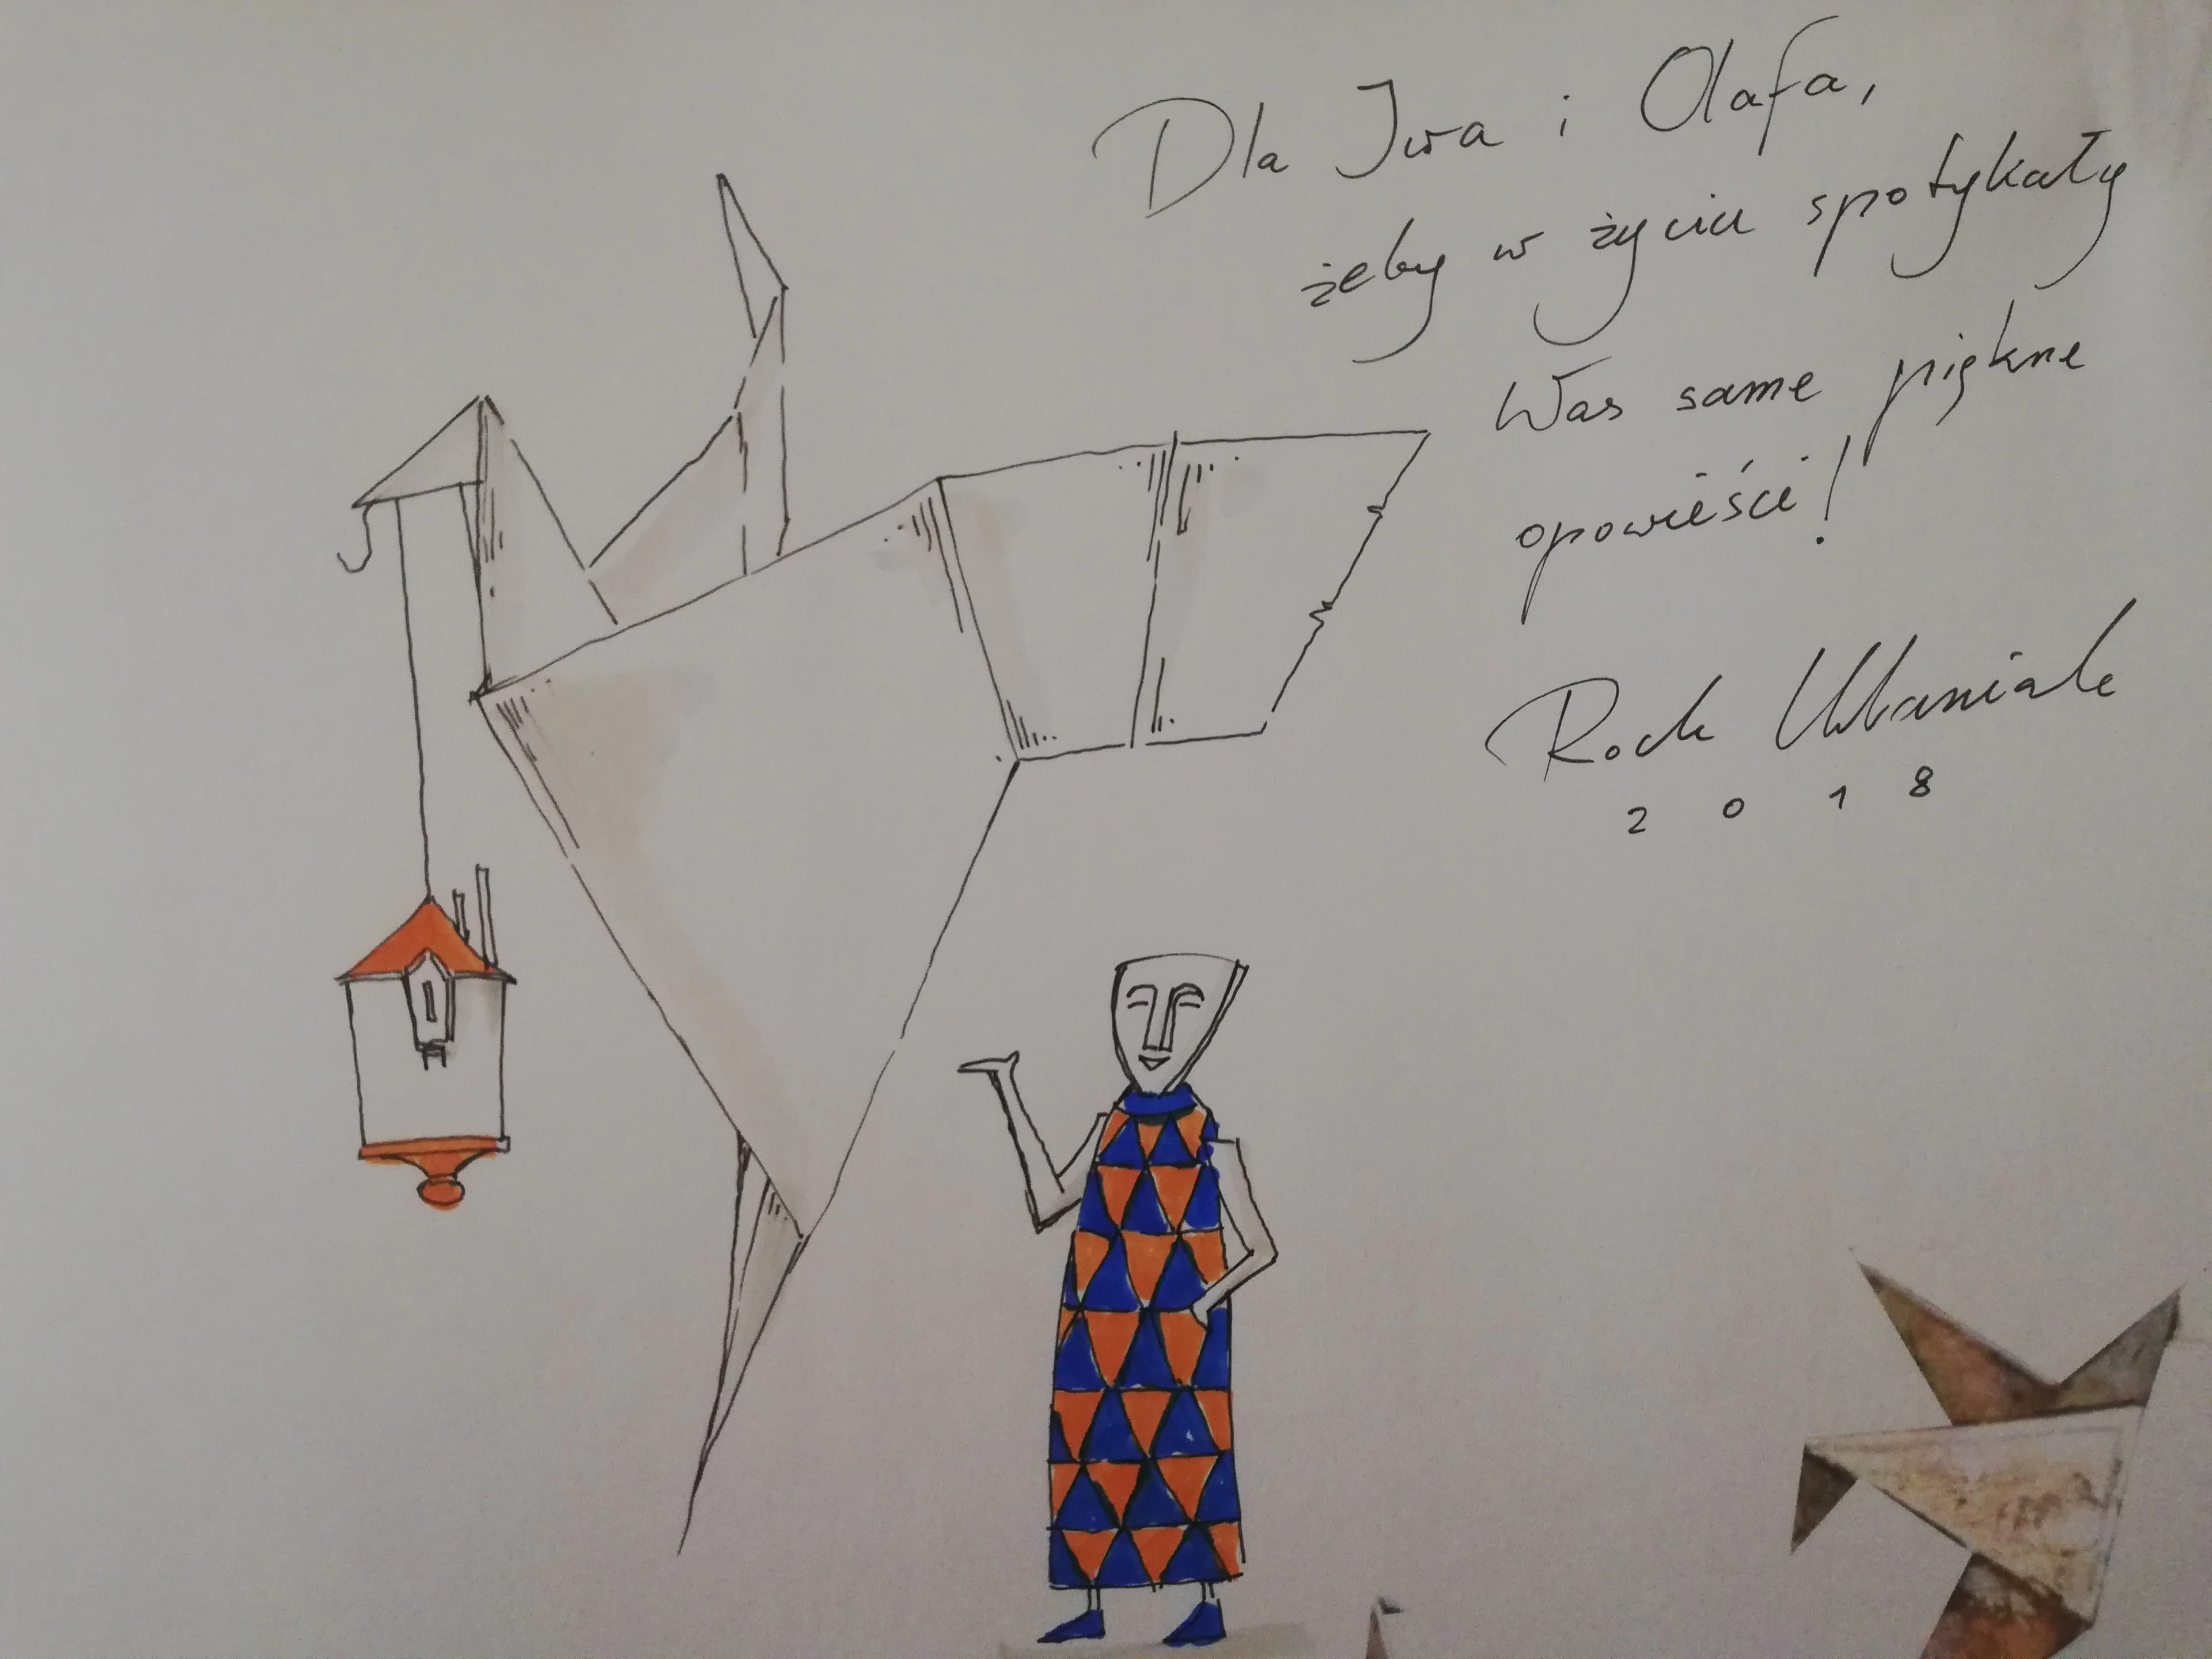 Dla Iwa i Olafa,
żeby w życiu spotykały
Was same piękne
opowieści!
Roch Urbaniak
2018